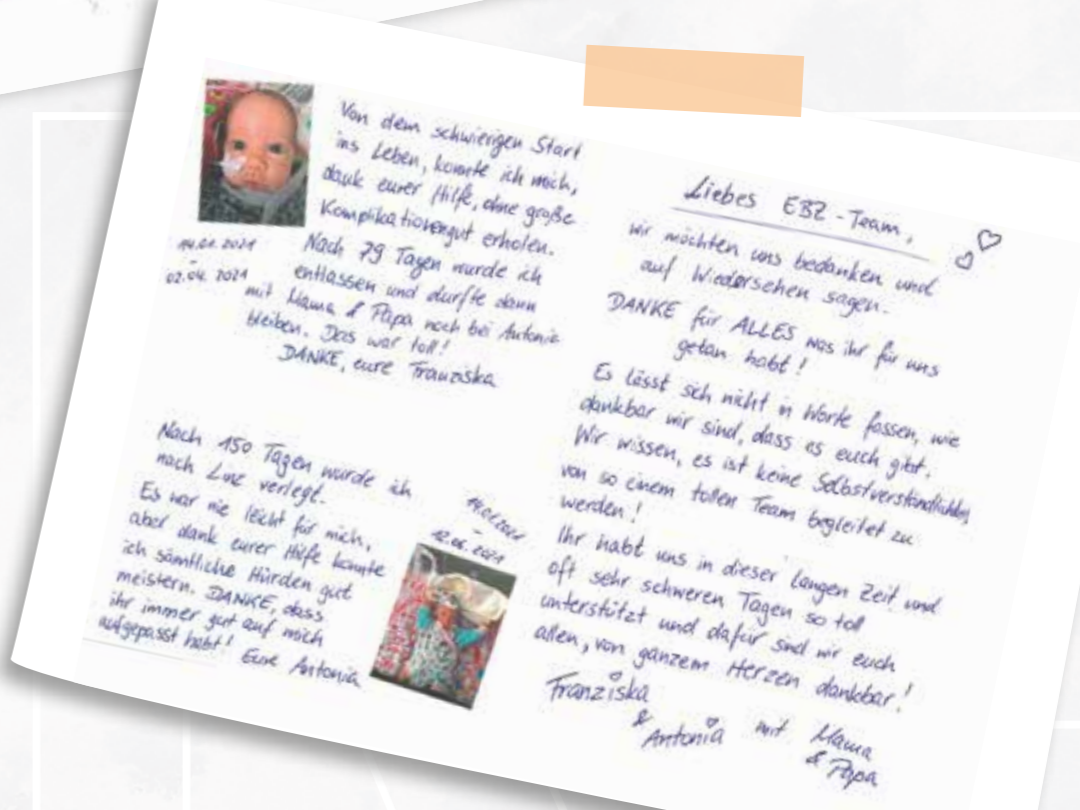 Von dem schwierigen Start
ins Leben, konnte ich mich,
dank eurer Hilfe, ohne große
Komplikationen gut erholen.
Nach 79 Tagen wurde ich
entlassen und durfte dann
mit Mama & Papa noch bei Antonia
bleiben. Das war toll!
DANKE, eure Franziska
02.04.2021
Nach 150 Tagen wurde ich
nach Linz verlegt.
Es war nie leicht für mich,
aber dank eurer Hilfe konnte
ich sämtliche Hürden gut
meistern. DANKE, dass
ihr immer gut auf mich
aufgepasst habt! Eure Antonia
12.06.2021
Liebes EBZ-Team,
wir möchten uns bedanken und
auf Wiedersehen sagen.
DANKE für ALLES was ihr für uns
getan habt!
Es lässt sich nicht in Worte fassen, wie
dankbar wir sind, dass es euch gibt.
Wir wissen, es ist keine
von so einem tollen Team begleitet zu
werden!
Ihr habt uns in dieser langen Zeit und
oft sehr schweren Tagen so toll
unterstützt und dafür sind wir euch
allen, von ganzem Herzen dankbar!
Franziska
& Antonia mit Mama
& Papa